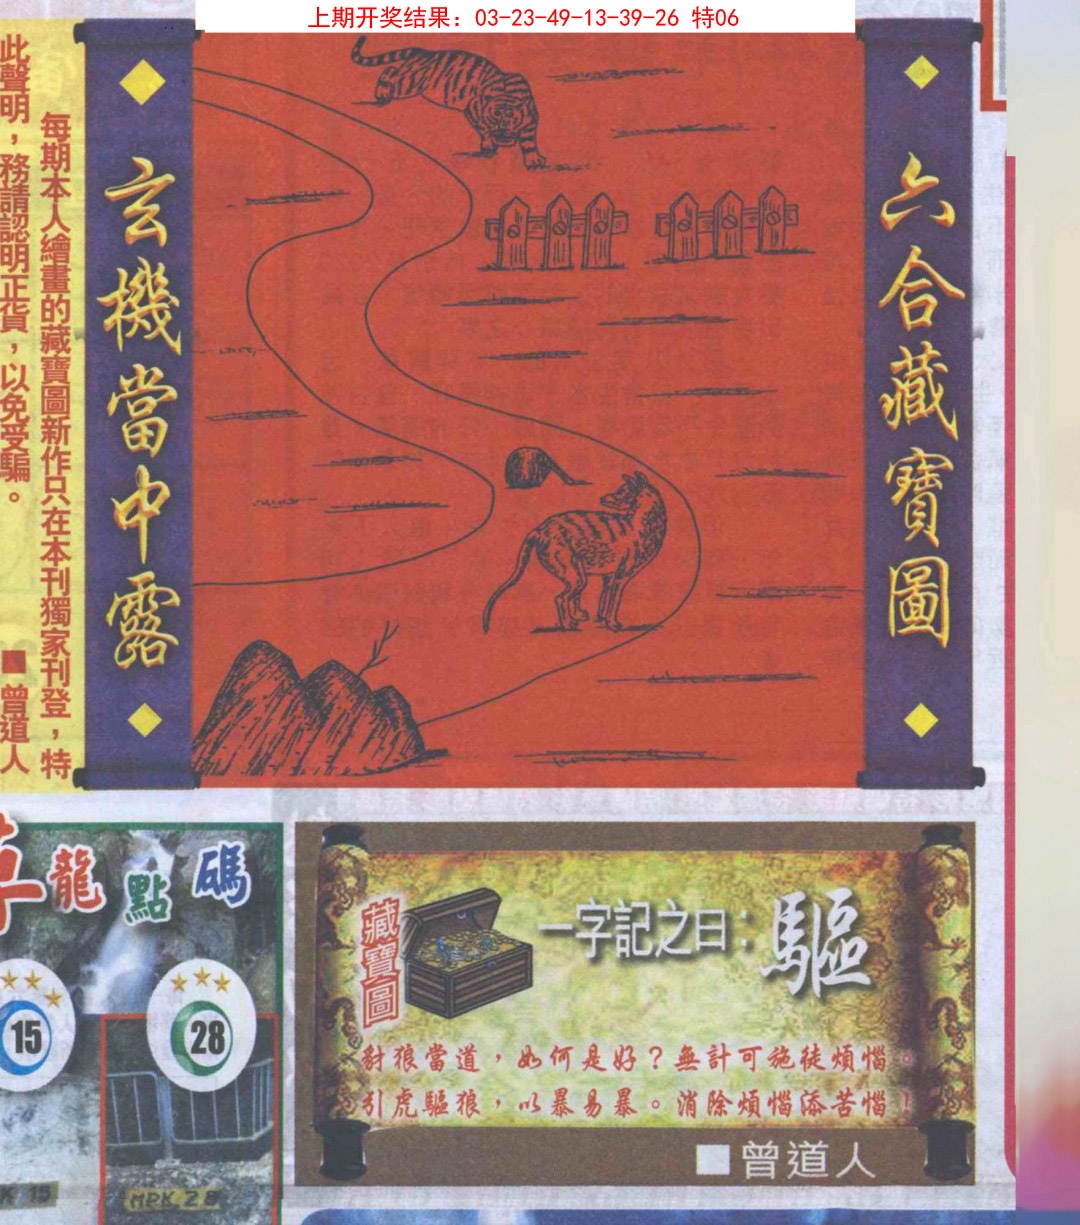 上期开奖结果：03-23-49-13-39-26 特06
六合藏寶圖
玄機當中露
每期本人繪畫的藏寶圖新作只在本刊獨家刊登，特
此聲明，務請認明正貨，以免受騙。 ■曾道人
龍點碼
15
28
15
MPK 28
藏寶圖
一字記之曰：驅
豺狼當道，如何是好？無計可施徒煩惱。
引虎驅狼，以暴易暴。消除煩惱添苦惱！
■曾道人